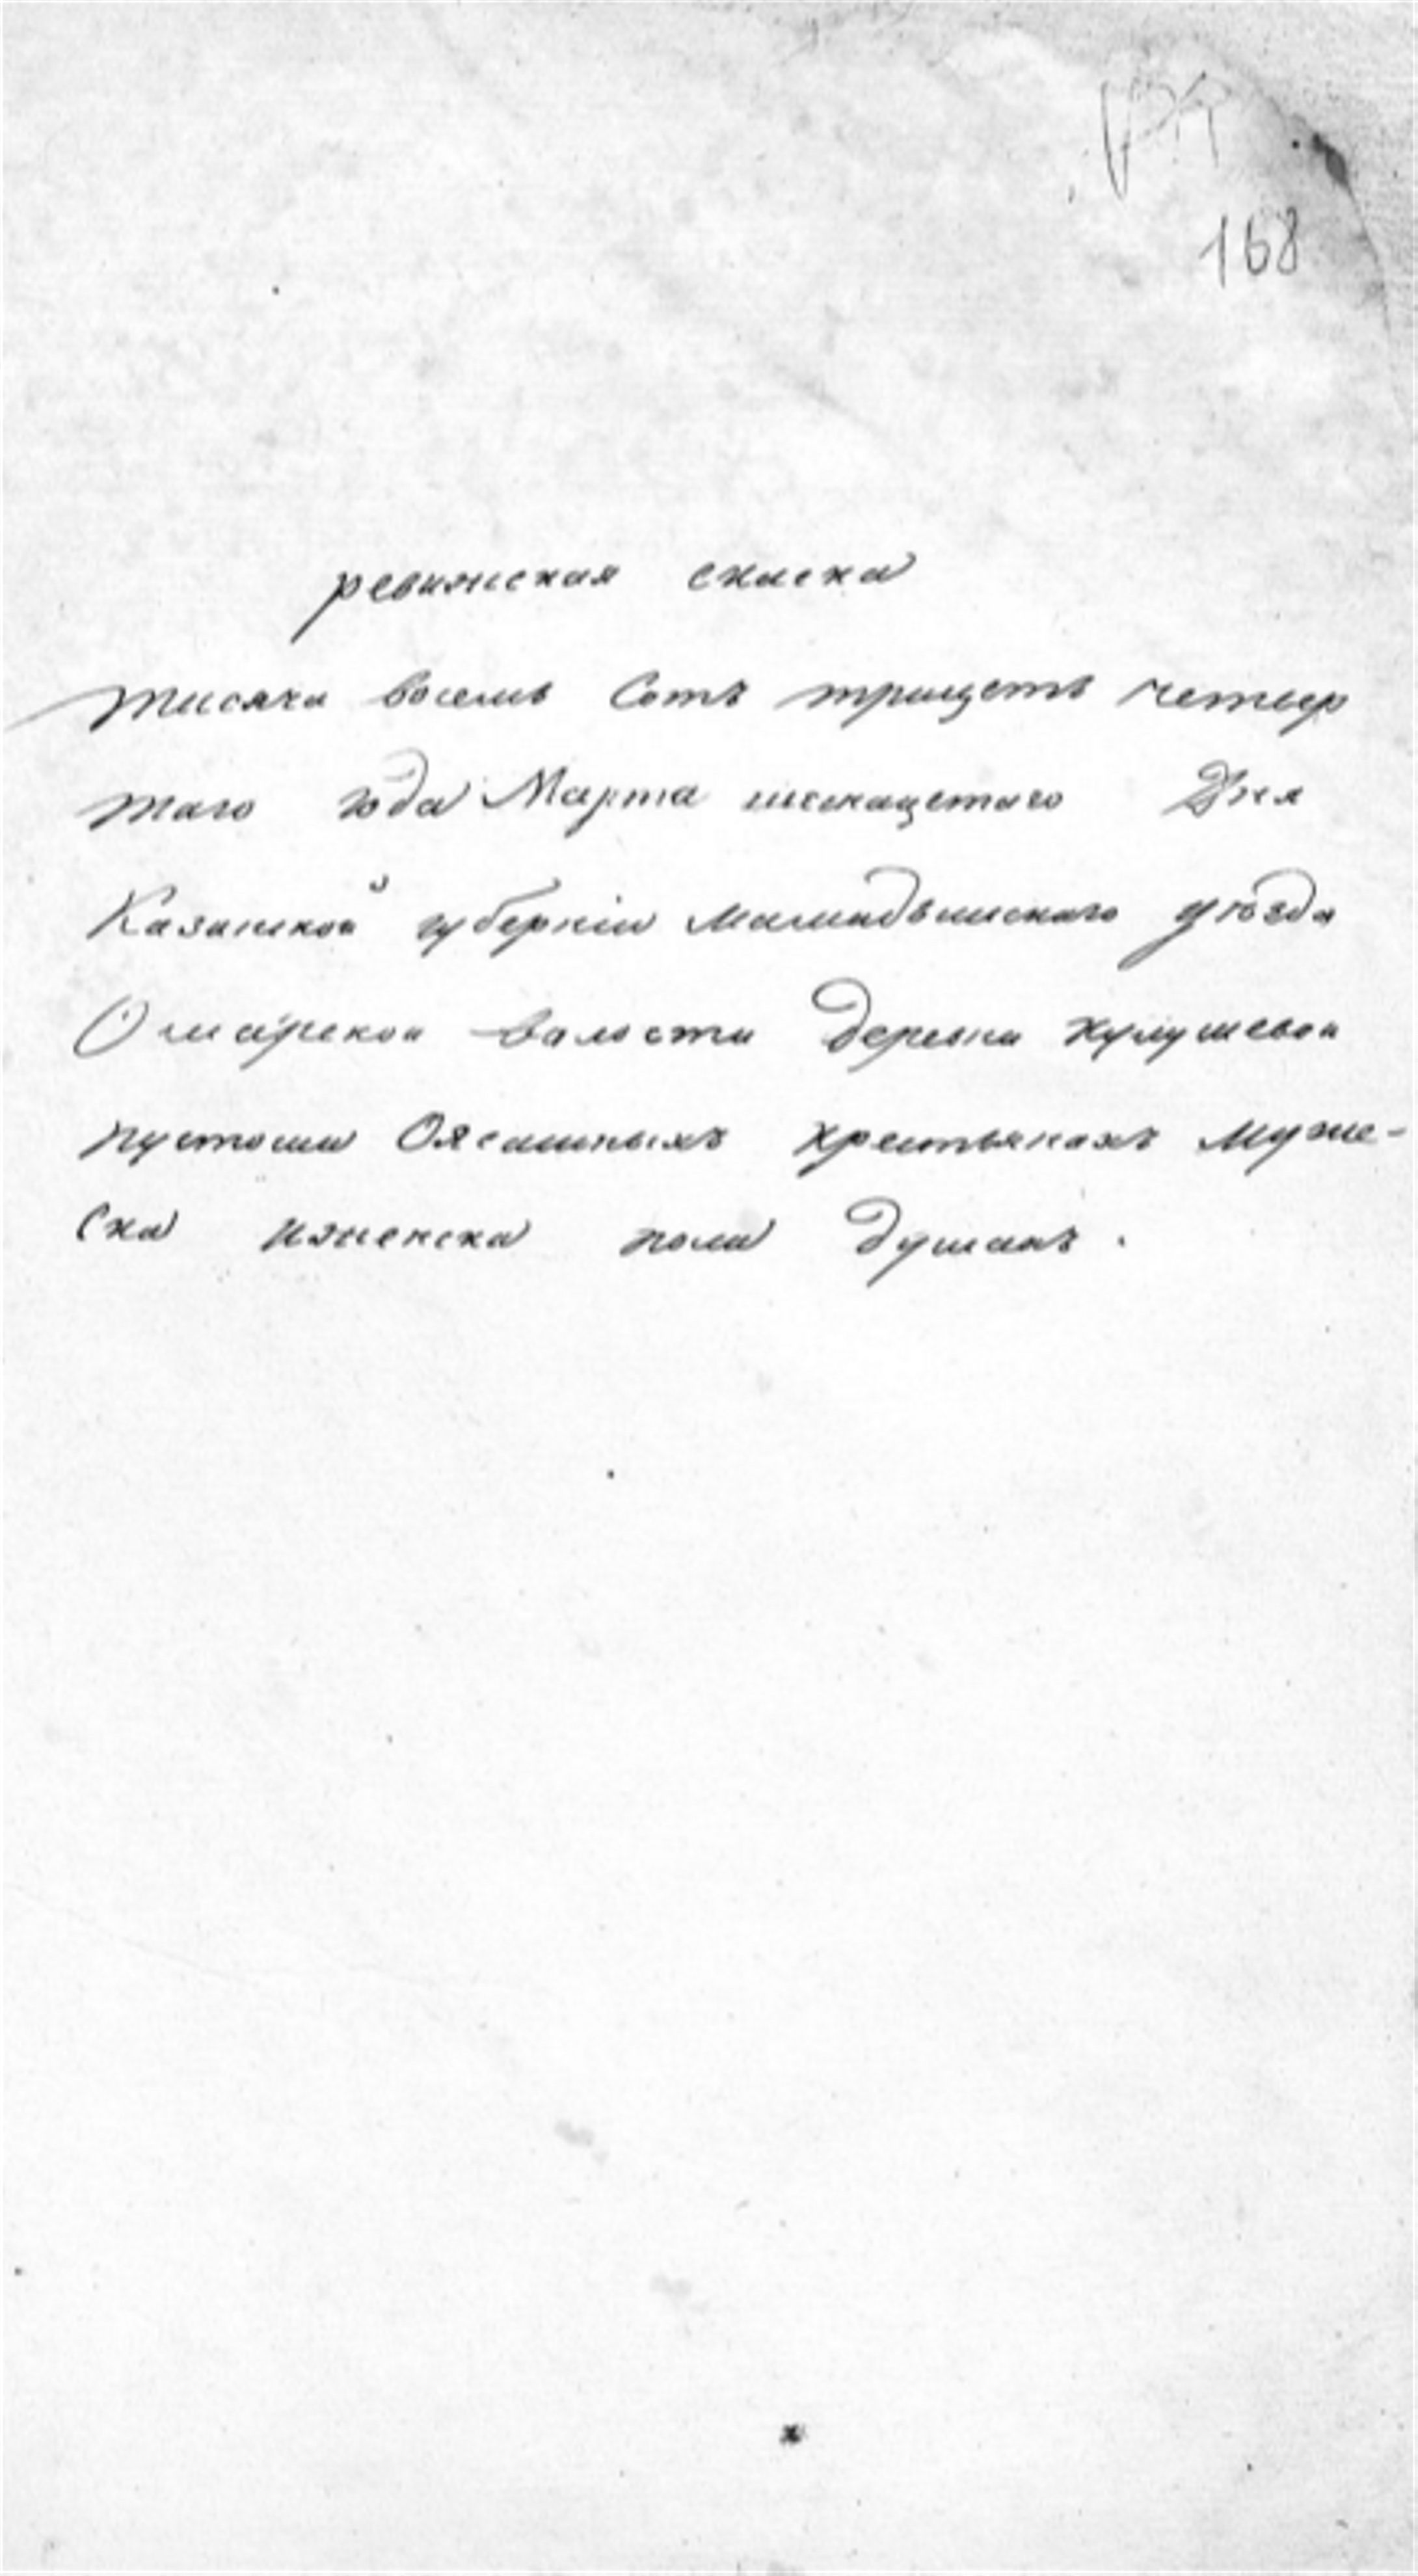 168
ревижская скаска
тисяча восемь Сотъ трицеть четвер
таго года Марта шеснацетаго Дня
Казанской губерніи мамадышскаго уѣзда
Омарской валости деревни кулушевой
пустоши Оясашныхъ крестьянахъ муже-
ска иженска пола душахъ.